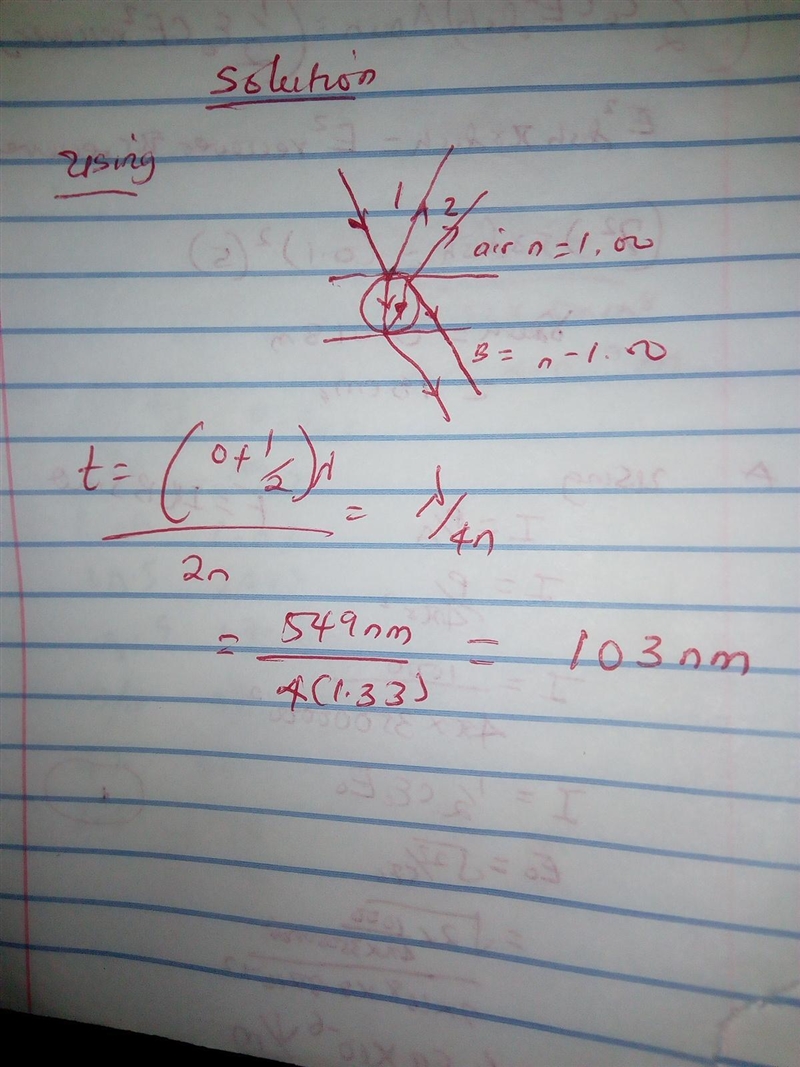 Solution
Using
1 2
air n = 1.00
B = n - 1.00
t = (0 + 1/2)λ / 2n = λ/4n
= 549nm / 4(1.33) = 103nm